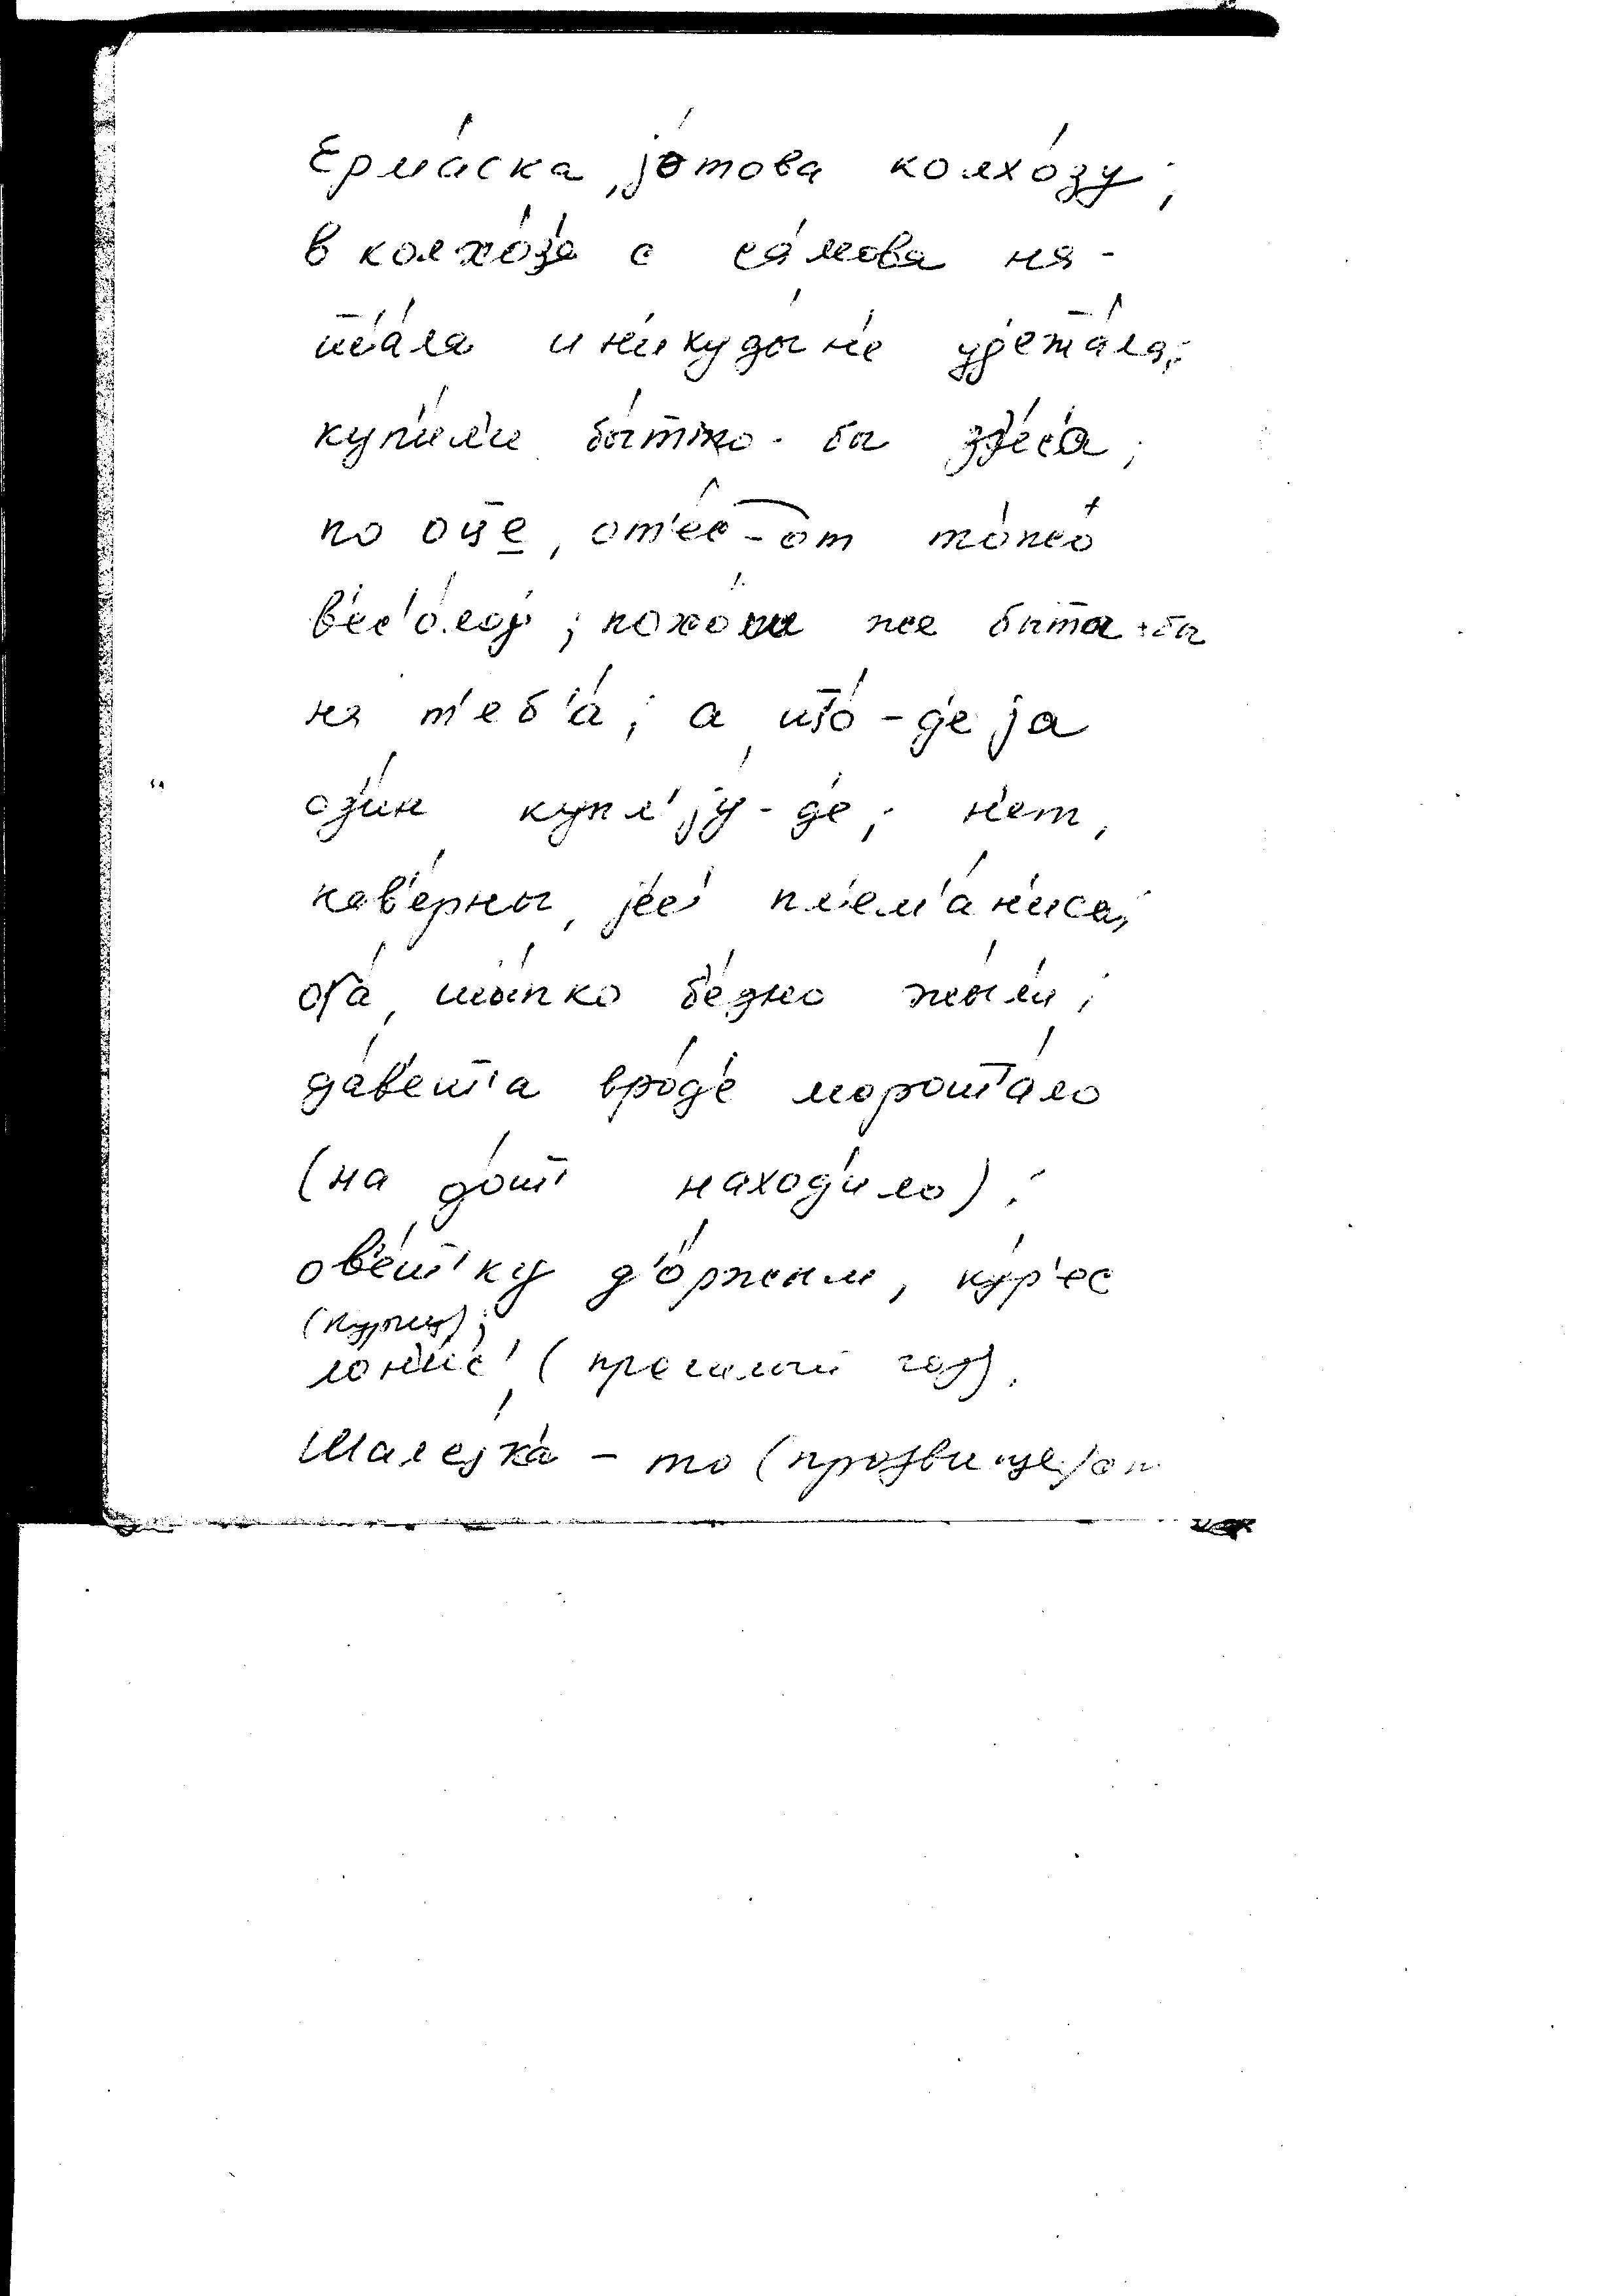 Ерма́ска, jо́това колхо́зу;
в колхо́за с са́мова на-
ша́ла и никуды́ не
купи́ли бы́тто-бы з'д'е́с'а;
по оце, от'е́c-от то́пео́
в'ес'о́лоj; похо́ш же бы́та-бы
на т'еб'а́; а што́-де jа
оди́н купл'jу́-де; н'ет,
нав'е́рны, jее́ пл'ем'а́н'иса;
оба́, шы́пко бе́дно жы́л'и;
да́в'еш'а вро́д'е морош'а́ло
(на до́ш' находи́ло);
ов'е́ш'ку д'о́ржым, ку́р'ес
(куриц);
лони́с' (прошлый год).
Шалеjка́ - то (прозвище)